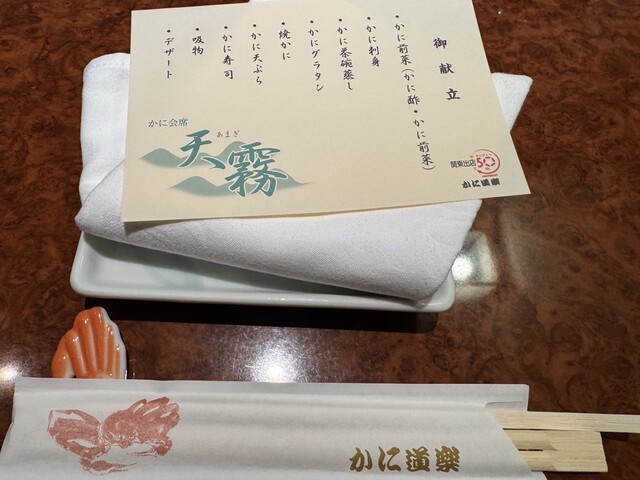 御献立
・かに前菜(かに酢・かに前菜)
・かに刺身
・かに茶碗蒸し
・かにグラタン
・焼かに
・かに天ぷら
・かに寿司
・吸物
・デザート
かに会席
あまぎ
天霧
関東出店
50
かに道楽
かに道楽